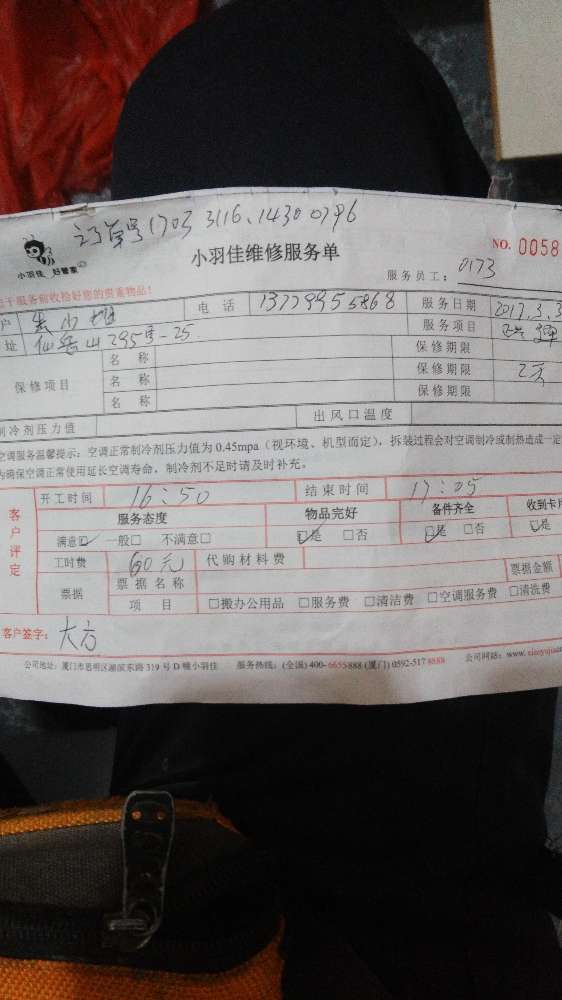 订单号1703 3116.14300796
小羽佳 好管家
小羽佳维修服务单
NO. 0058
服务员工: 0173
于服务前收拾好您的贵重物品!
户 电话 13779955868 服务日期 2017.3.3
址 仙岳山295号-25 服务项目
保修项目 名称 保修期限
名称 保修期限 2天
名称 保修期限
制冷剂压力值 出风口温度
空调服务温馨提示: 空调正常制冷剂压力值为 0.45mpa (视环境、机型而定), 拆装过程会对空调制冷或制热造成一定
为确保空调正常使用延长空调寿命, 制冷剂不足时请及时补充。
客户评定
开工时间 16:50 结束时间 17:05
服务态度 物品完好 备件齐全 收到卡
满意☑ 一般□ 不满意□ ☑是 □否 ☑是 □否 ☑是
工时费 60元 代购材料费
票据 票据名称 票据金额
项目 □搬办公用品 □服务费 □清洁费 □空调服务费 □清洗费
客户签字: 大方
公司地址: 厦门市思明区湖滨东路 319 号 D 幢小羽佳 服务热线: (全国) 400-6655888 (厦门) 0592-5178888 公司网站: www.xiaoyujia